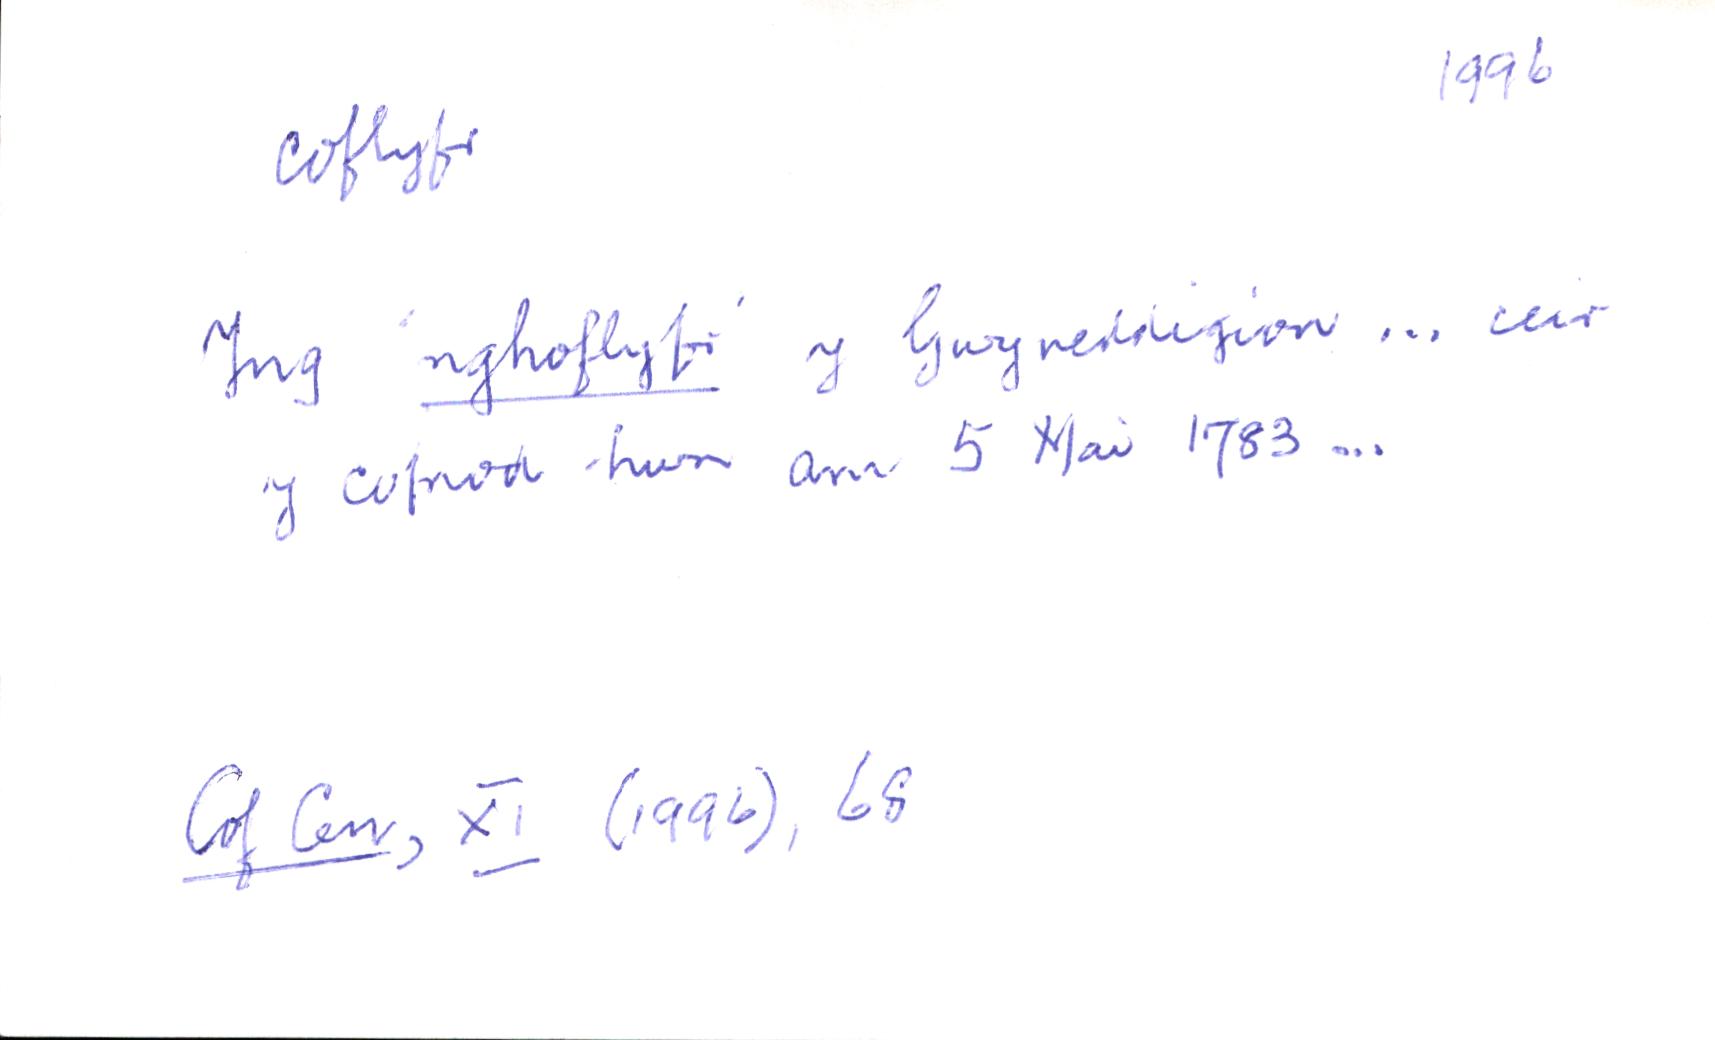 1996
coflyfr
Yng 'nghoflyfr' y Gwyneddigion ... ceir
y cofnod hwn am 5 Mai 1783 ...
Cof Cen, XI (1996), 68